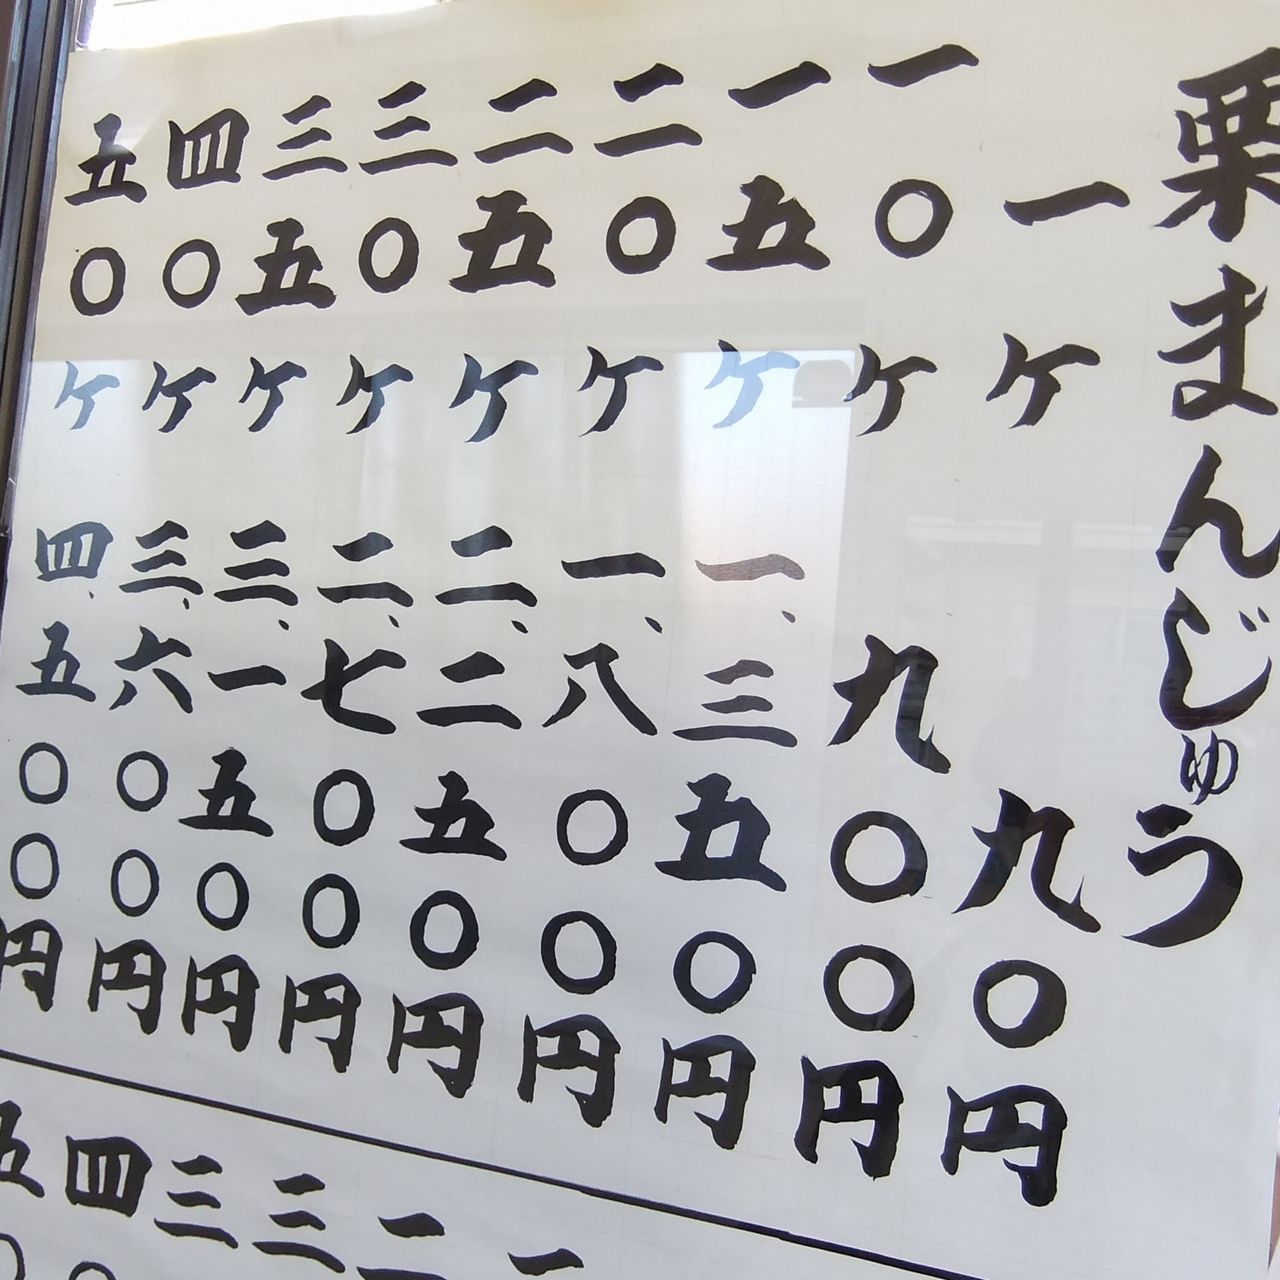 栗まんじゅう
一ヶ 九〇円
一〇ヶ 九〇〇円
一五ヶ 一、三五〇円
二〇ヶ 一、八〇〇円
二五ヶ 二、二五〇円
三〇ヶ 二、七〇〇円
三五ヶ 三、一五〇円
四〇ヶ 三、六〇〇円
五〇ヶ 四、五〇〇円
一
二
三
三
四〇
五〇